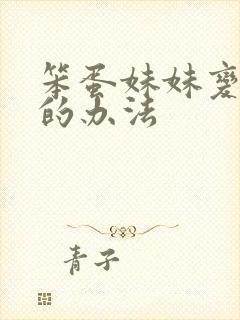 笨蛋妹妹变
的办法
青子